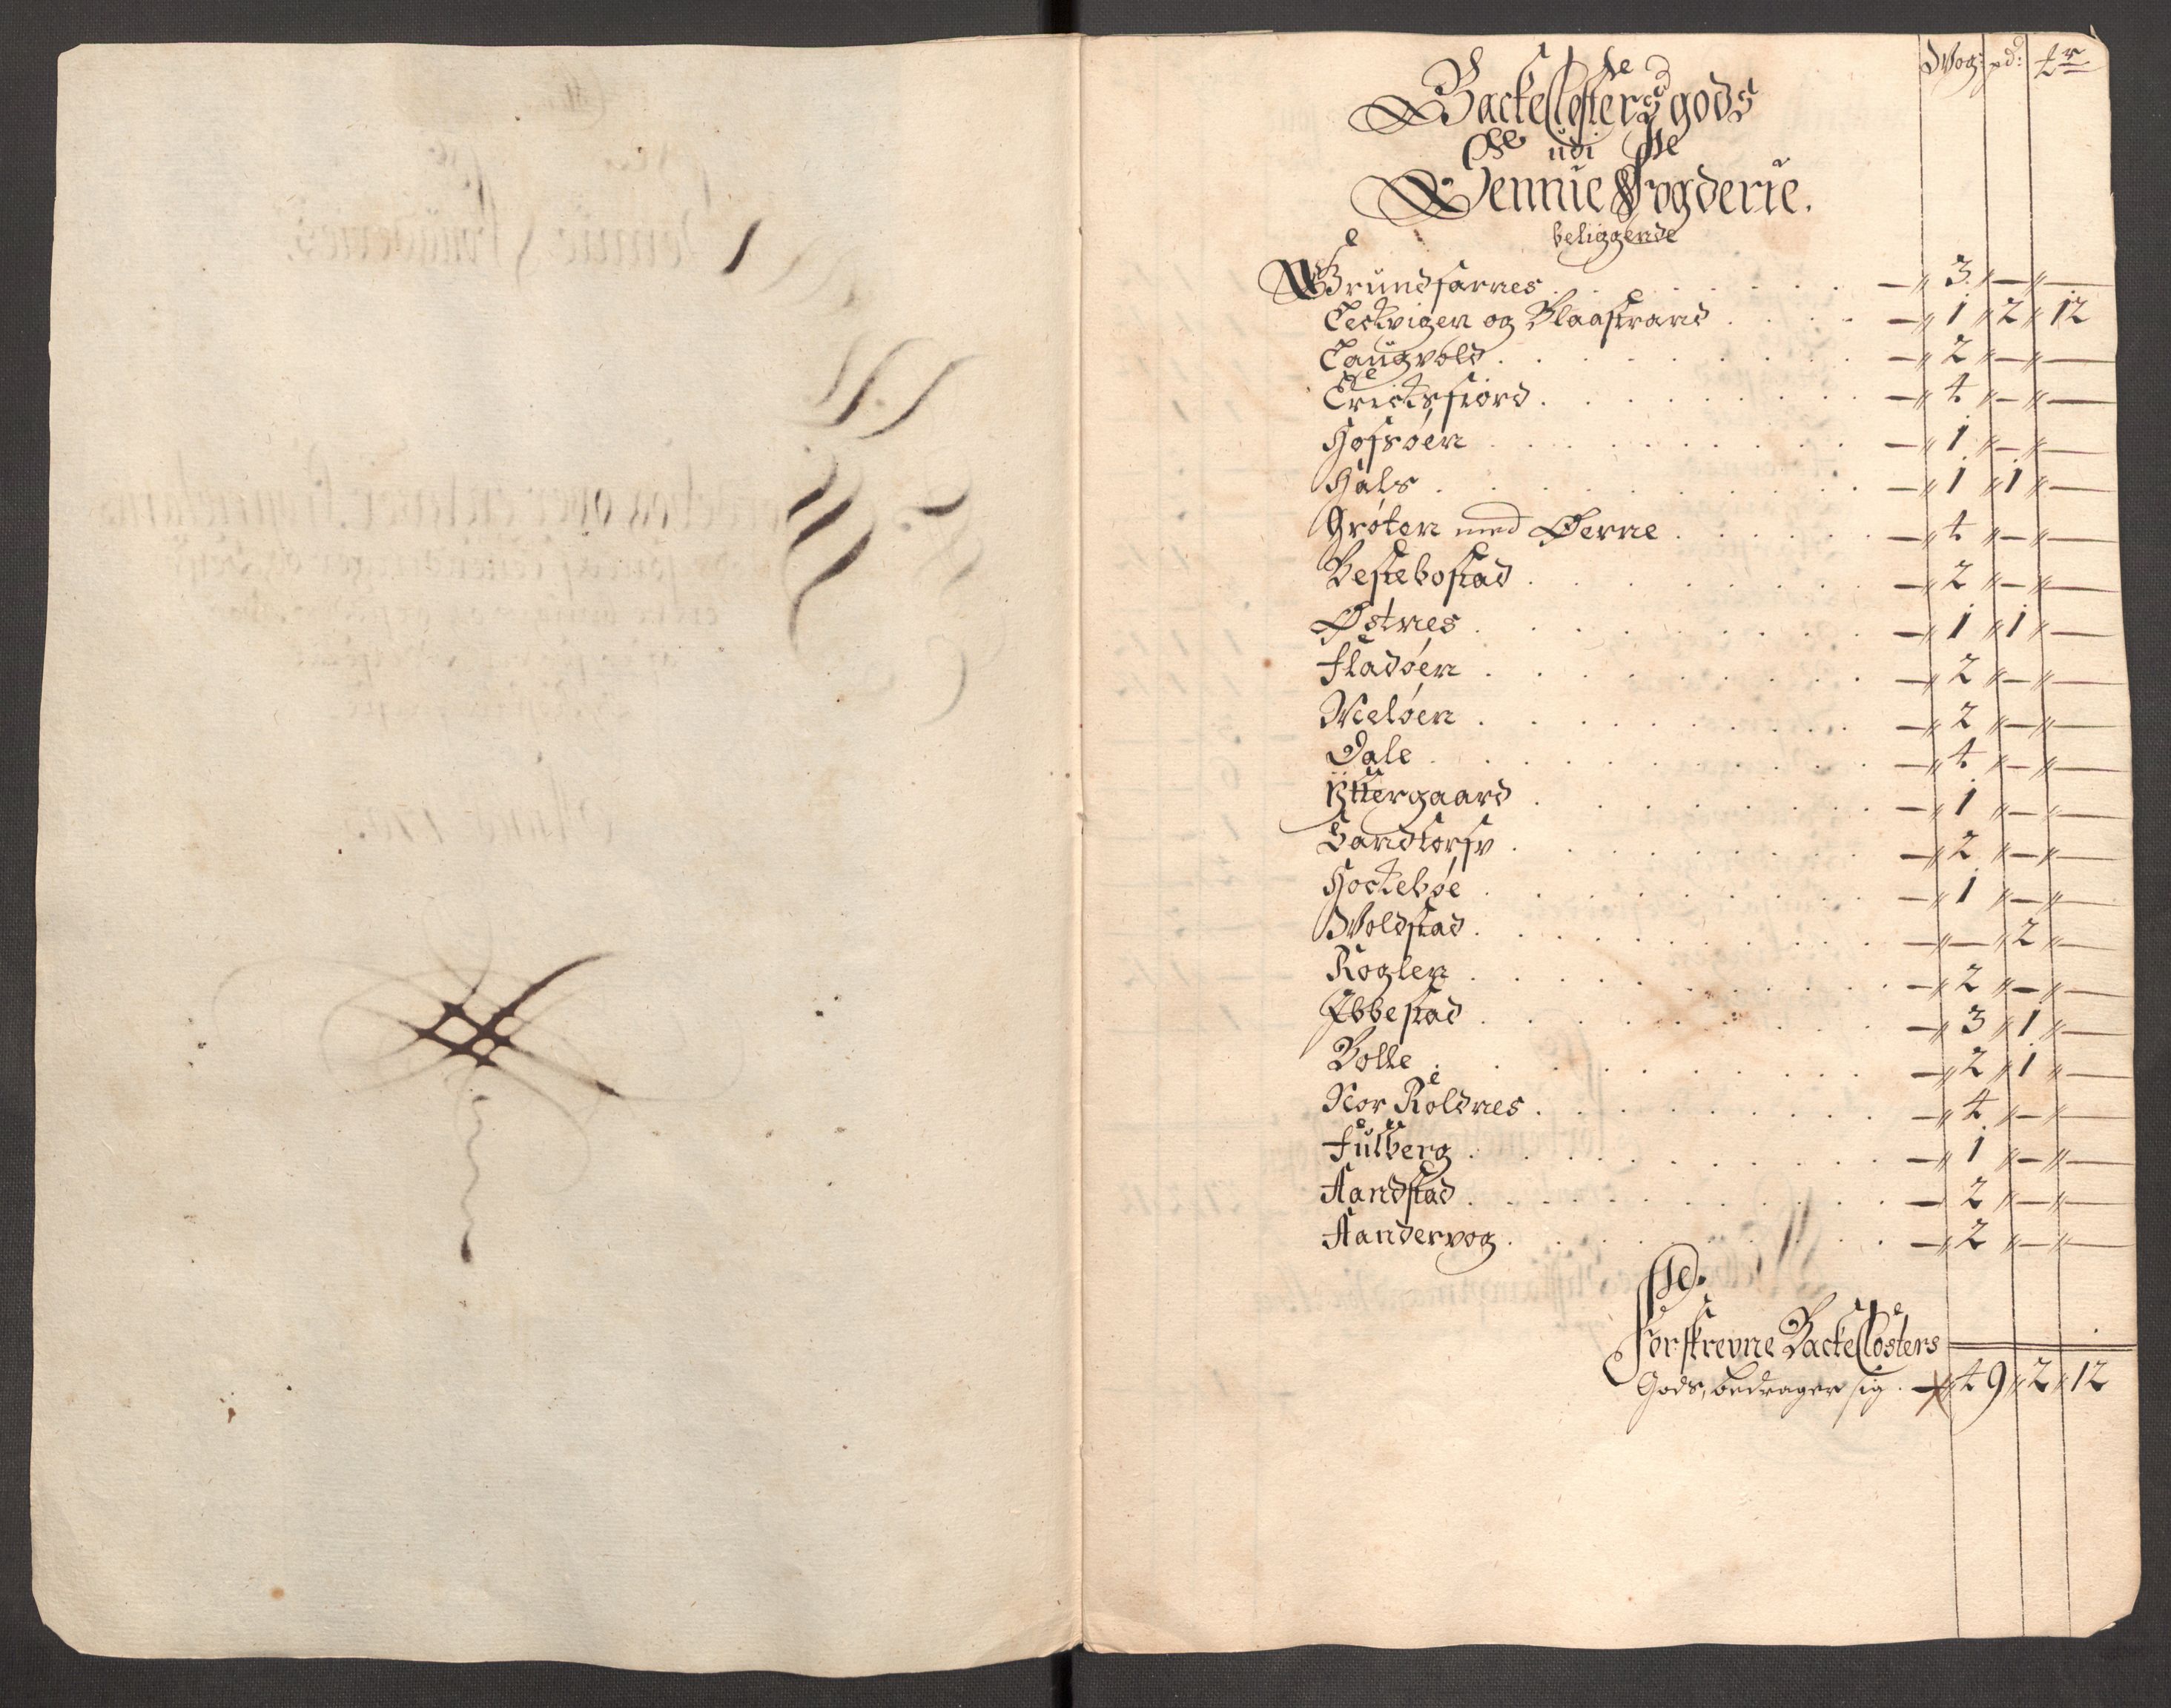 Wog: pd: tr
Backe Closters gods
udi
Sennie Fogderie.
beliggende
Grundfarnes . . . — 3 — —
Leckvigen og Blaastrand . . . — 1 2 12
Laugvold . . . — 2 — —
Ericksfiord . . . — t — —
Hofsøen . . . — 1 — —
Hals . . . — 1 1 —
Grøten med Øerne . . . — t — —
Bestebostad . . . — 2 — —
Østnes . . . — 1 1 —
Fladøen . . . — 2 — —
Meløen . . . — 2 — —
Dale . . . — t — —
Yttergaard . . . — 1 — —
Sandtorfv . . . — 2 — —
Hockebøe . . . — 1 — —
Woldstad . . . — — 2 —
Roglen . . . — 2 — —
Ibbestad . . . — 3 1 —
Bolle . . . — 2 1 —
Nor Roldnes . . . — t — —
Fulberg . . . — 1 — —
Aandstad . . . — 2 — —
Aandervog . . . — 2 — —
Forskrevne Backe Closters
Gods, bedrager sig . — t9 2 12